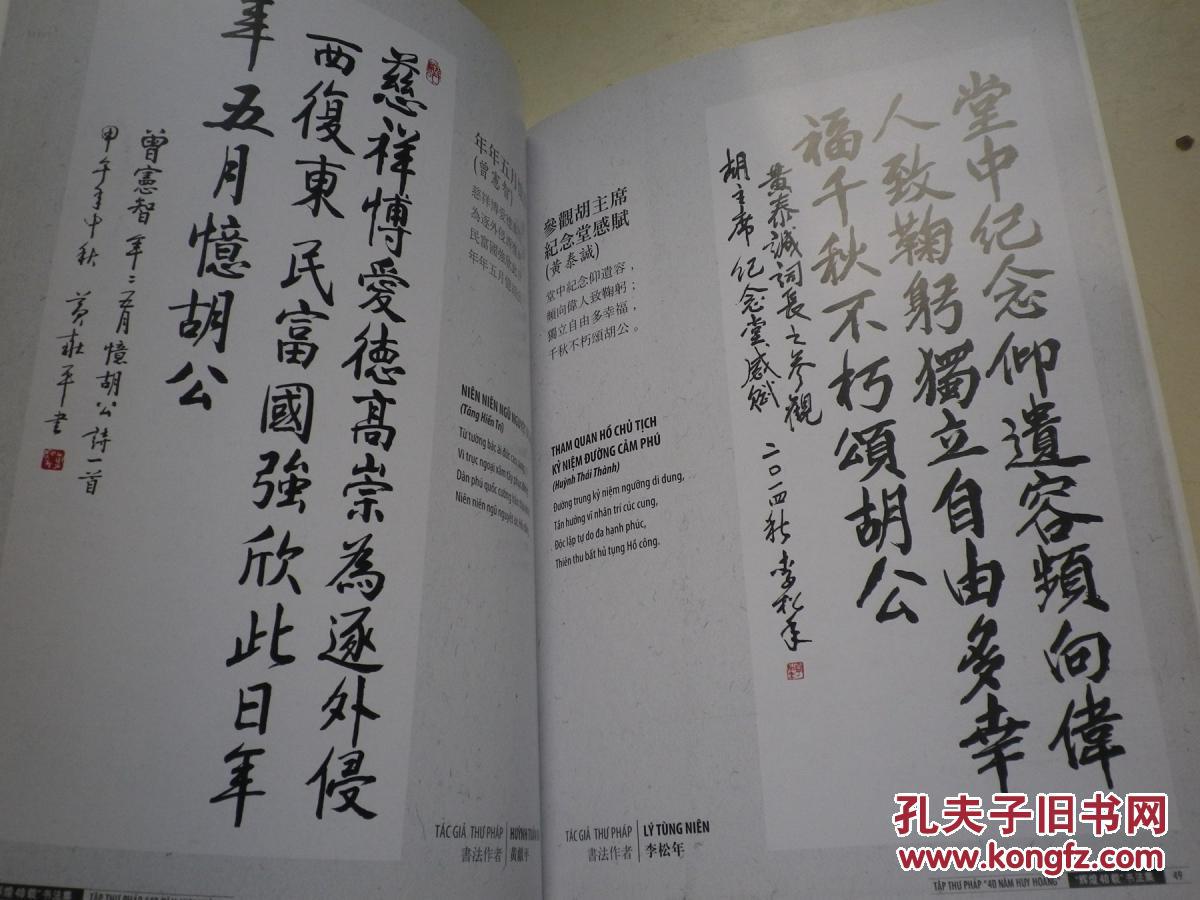 慈祥博愛德高崇為逐外侵
西復東民富國強欣此日年
年五月憶胡公
曾憲智年年五月憶胡公詩一首
甲午年中秋 黃獻平書
年年五月憶
(曾憲智)
慈祥博愛德
為逐外侵西
民富國強欣此
年年五月憶
NIÊN NIÊN NGŨ NGUYỆT
(Tăng Hiến Trí)
Từ tường bác ái đức cao sùng,
Vì trục ngoại xâm tây phục
Dân phú quốc cường
Niên niên ngũ nguyệt
TÁC GIẢ THƯ PHÁP
書法作者
HUỲNH TUẤN
黃獻平
堂中纪念仰遺容頻向偉
人致鞠躬獨立自由多幸
福千秋不朽頌胡公
黃泰誠詞長之參觀
胡主席纪念堂感赋 二〇一四秋 李松年
參觀胡主席
紀念堂感賦
(黃泰誠)
堂中紀念仰遺容，
頻向偉人致鞠躬；
獨立自由多幸福，
千秋不朽頌胡公。
THAM QUAN HỒ CHỦ TỊCH
KỶ NIỆM ĐƯỜNG CẢM PHÚ
(Huỳnh Thái Thành)
Đường trung kỷ niệm ngưỡng di dung,
Tần hướng vĩ nhân trí cúc cung,
Độc lập tự do đa hạnh phúc,
Thiên thu bất hủ tụng Hồ công.
TÁC GIẢ THƯ PHÁP
書法作者
LÝ TÙNG NIÊN
李松年
TẬP THƯ PHÁP "40 NĂM HUY HOÀNG"
"輝煌40載"书法集
49
"輝煌40載"书法集
孔夫子旧书网
www.kongfz.com